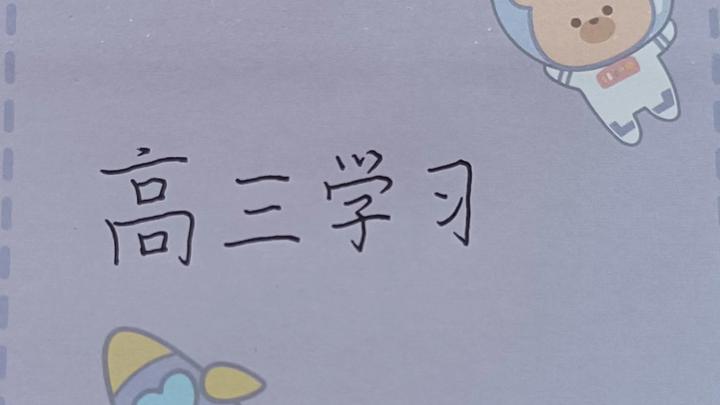 高三学习